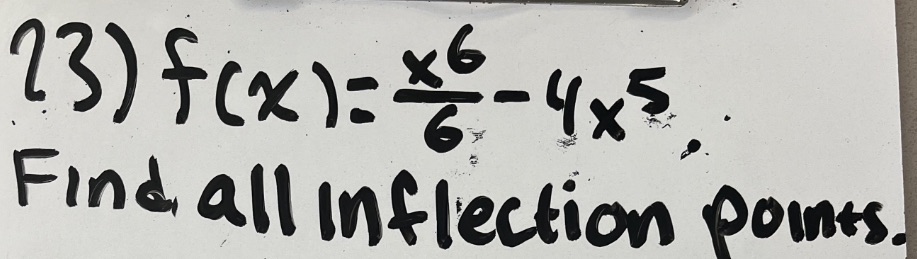 23) f(x) = x^6/6 - 4x^5.
Find all Inflection points.